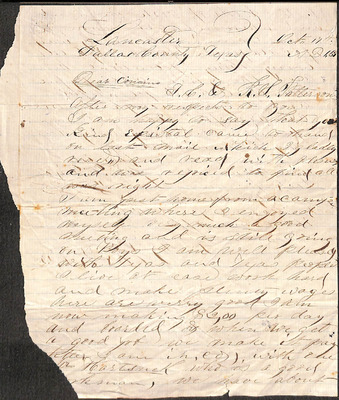 Lancaster Oct 17th
Dallas County Texas
Dear Cousins
J. A. & K. U. Patterson
After my respects to you
I am happy to say that your
kind epistal came to hand
on last mail which I gladly
received and read with pleasure
and was rejoiced to find all
was right
I am just home from a camp
meeting where I enjoyed
myself very much a good
meeting and is still going
on Boys I am well pleased
with Texas and its prospects
I live at ease work hard
and make money wages
here are verry good I am
now making $2,00 per day
and boarded So when we get
a good job we make it pay
for I am in (Co), with one
a Hartsook who is a good
workman, we have about